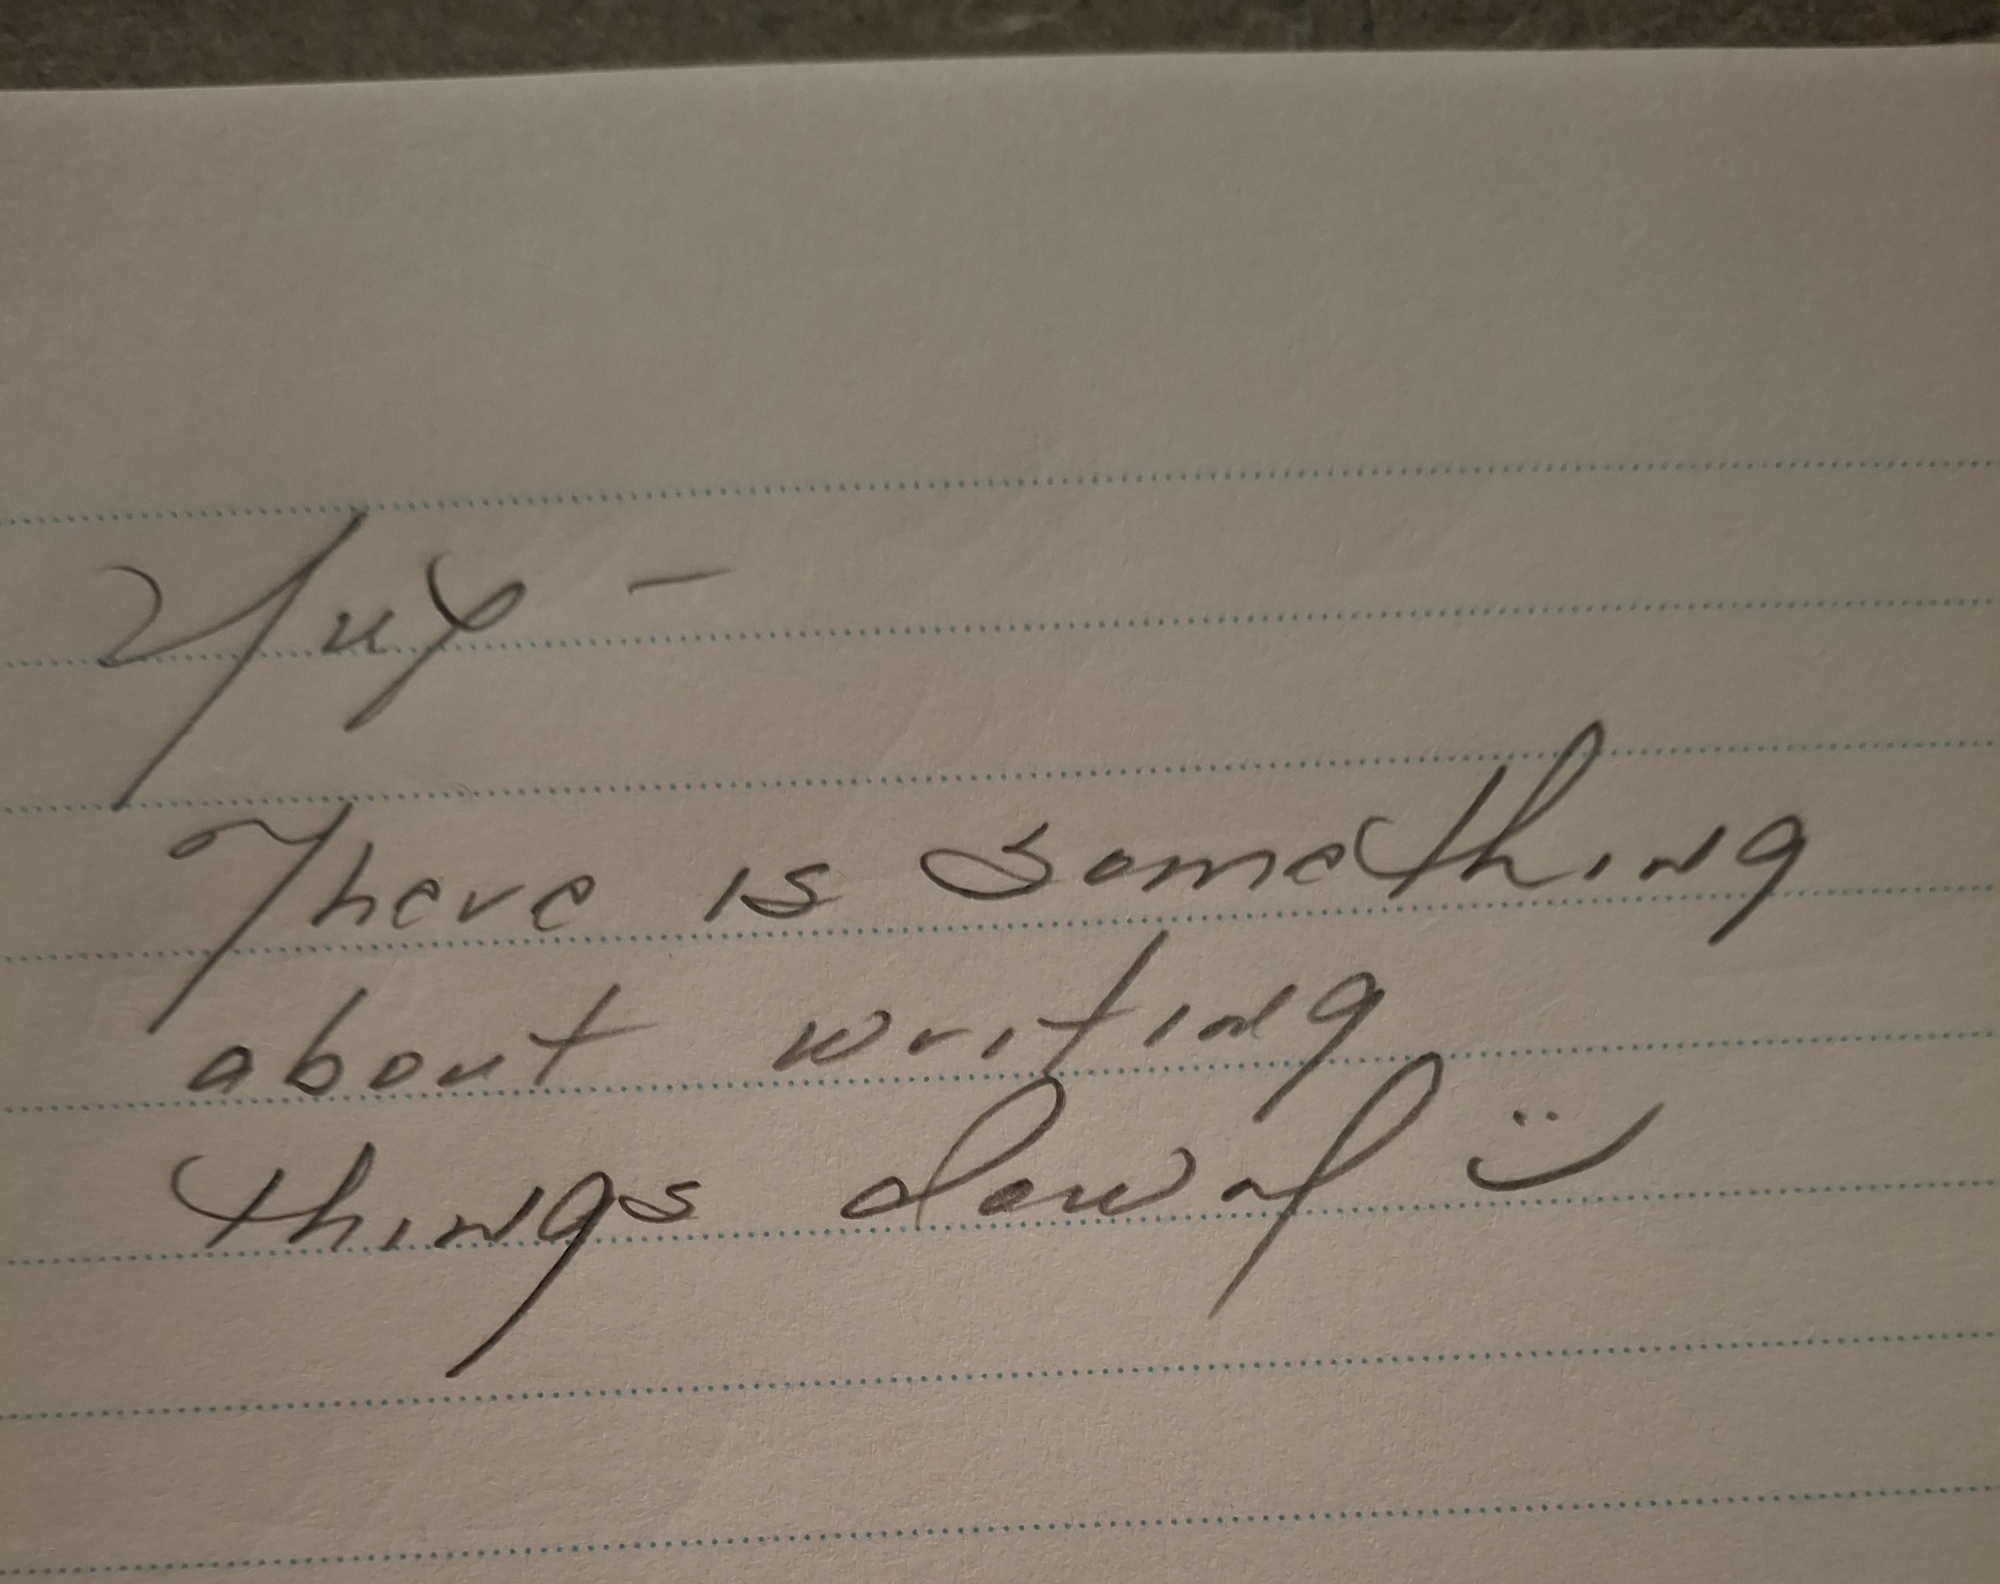 Yup -
There is something
about writing
things down :)